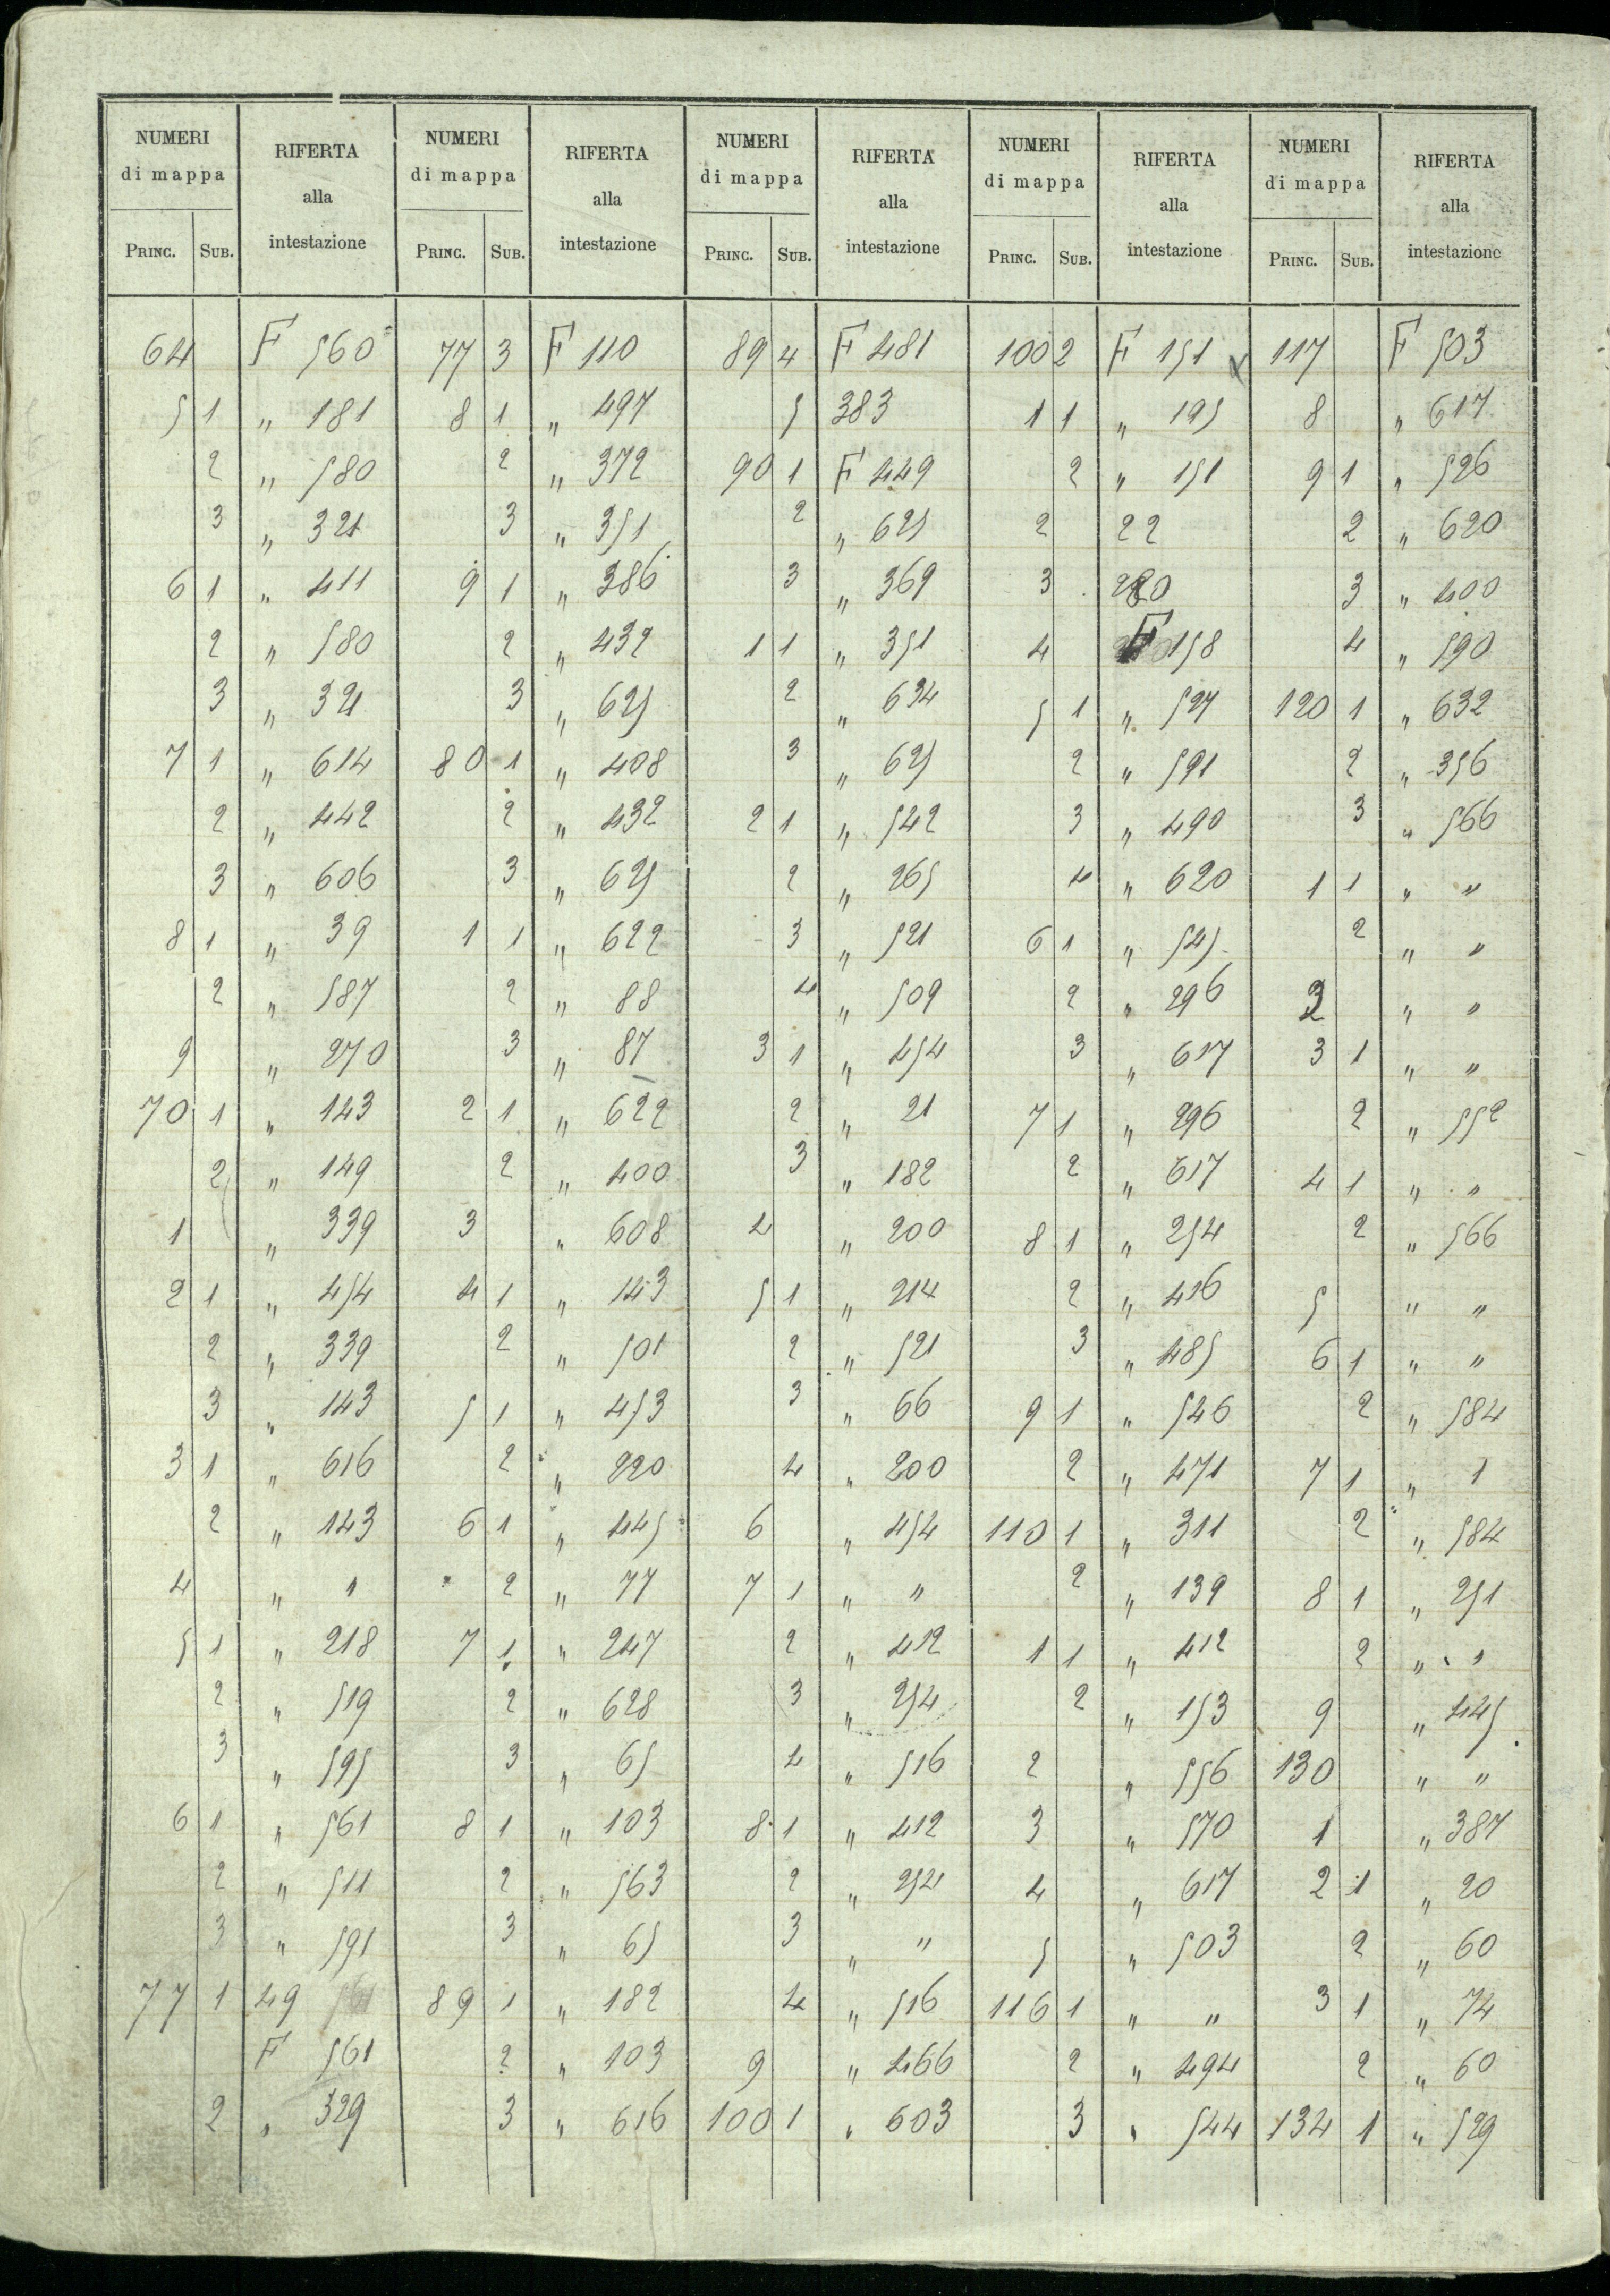 NUMERI di mappa RIFERTA alla intestazione NUMERI di mappa RIFERTA alla intestazione NUMERI di mappa RIFERTA alla intestazione NUMERI di mappa RIFERTA alla intestazione NUMERI di mappa RIFERTA alla intestazione
PRINC. SUB. PRINC. SUB. PRINC. SUB. PRINC. SUB. PRINC. SUB.
64 F 560 77 3 F 110 89 4 F 481 100 2 F 151 117 F 503
5 1 " 181 8 1 " 497 5 383 1 1 " 195 8 " 617
2 " 580 2 " 372 90 1 F 449 2 " 151 9 1 " 526
3 " 321 3 " 351 2 " 625 2 22 2 " 620
6 1 " 411 9 1 " 386 3 " 369 3 280 3 " 400
2 " 580 2 " 432 1 1 " 351 4 F 158 4 " 590
3 " 321 3 " 625 2 " 634 5 1 " 527 120 1 " 632
7 1 " 614 80 1 " 408 3 " 625 2 " 591 2 " 356
2 " 442 2 " 432 2 1 " 542 3 " 490 3 " 566
3 " 606 3 " 625 2 " 265 4 " 620 1 1 " "
8 1 " 39 1 1 " 622 3 " 521 6 1 " 545 2 " "
2 " 587 2 " 88 4 " 509 2 " 296 2 " "
9 " 270 3 " 87 3 1 " 454 3 " 617 3 1 " "
70 1 " 143 2 1 " 622 2 " 21 7 1 " 296 2 " 552
2 " 149 2 " 400 3 " 182 2 " 617 4 1 " "
1 " 339 3 " 608 4 " 200 8 1 " 254 2 " 566
2 1 " 454 4 1 " 143 5 1 " 214 2 " 426 5 " "
2 " 339 2 " 501 2 " 521 3 " 485 6 1 " "
3 " 143 5 1 " 453 3 " 66 9 1 " 546 2 " 584
3 1 " 616 2 " 220 4 " 200 2 " 471 7 1 " 1
2 " 143 6 1 " 445 6 " 454 110 1 " 311 2 " 584
4 " " 2 " 77 7 1 " " 2 " 139 8 1 " 251
5 1 " 218 7 1 " 247 2 " 412 1 1 " 412 2 " "
2 " 519 2 " 628 3 " 254 2 " 153 9 " 445
3 " 595 3 " 65 4 " 516 2 " 556 130 " "
6 1 " 561 8 1 " 103 8 1 " 412 3 " 570 1 " 387
2 " 511 2 " 563 2 " 254 4 " 617 2 1 " 20
3 " 591 3 " 65 3 " " 5 " 503 2 " 60
77 1 49 89 1 " 182 4 " 516 116 1 " " 3 1 " 74
F 561 2 " 103 9 " 466 2 " 494 2 " 60
2 " 329 3 " 616 100 1 " 603 3 " 544 134 1 " 529